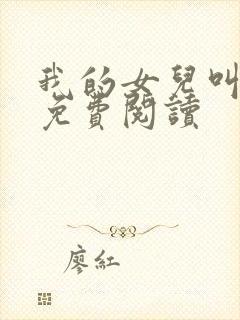 我的女兒叫
免費閱讀
廖紅